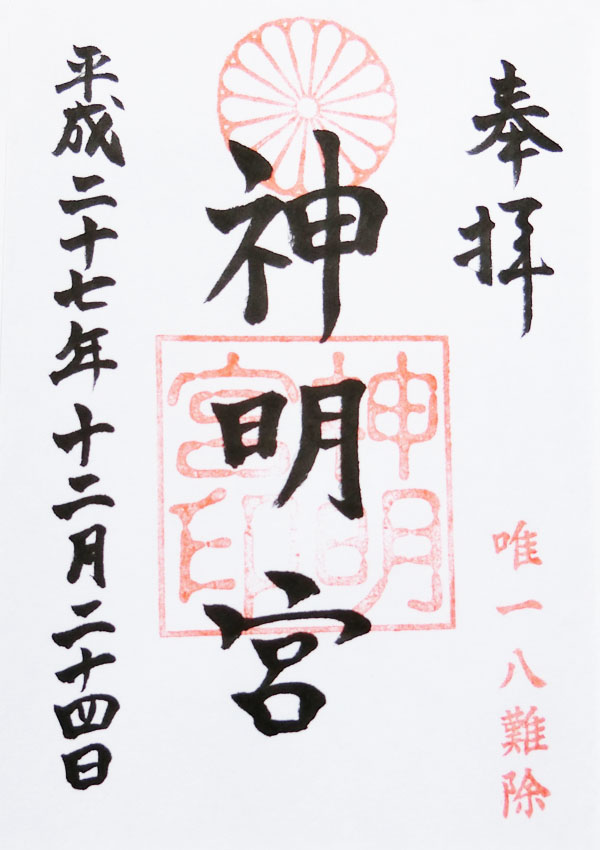 奉拝
唯一八難除
神明宮
神明宮印
平成二十七年十二月二十四日